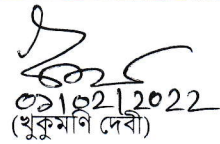 ০১/০2/2022
(খুকুমণি দেবী)